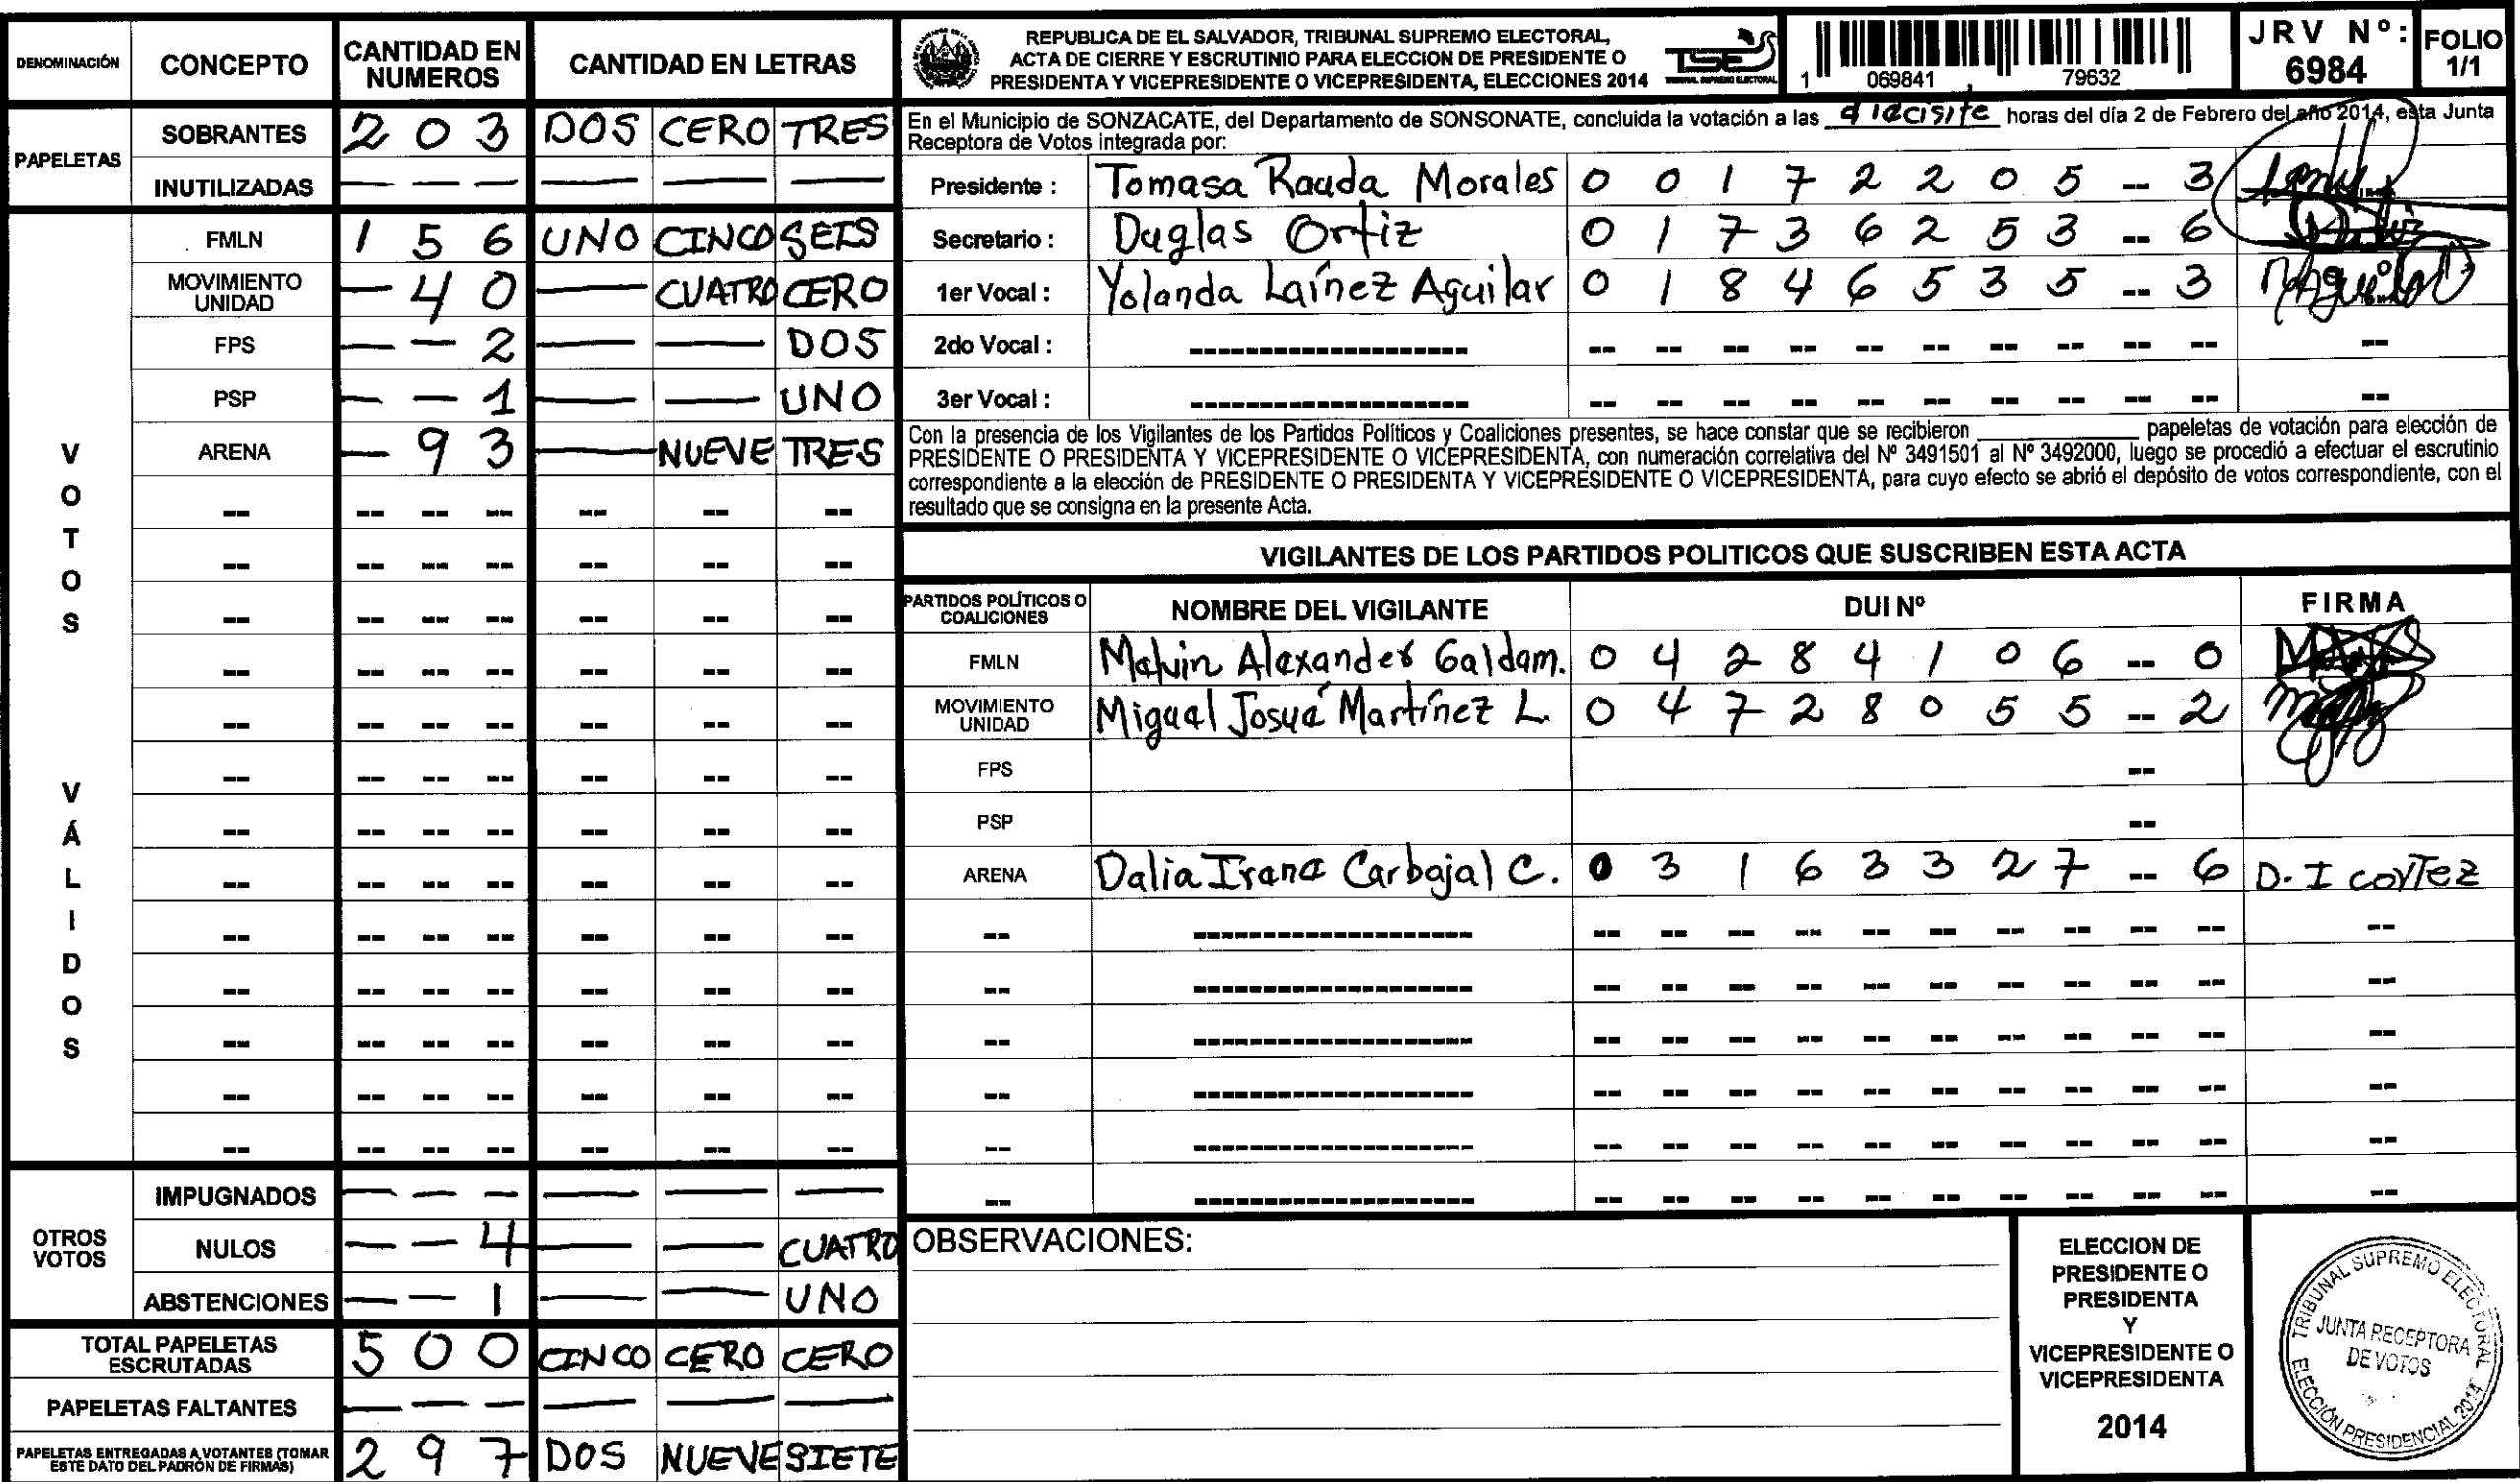 DENOMINACIÓN CONCEPTO CANTIDAD EN NUMEROS CANTIDAD EN LETRAS
PAPELETAS
SOBRANTES 2 0 3 DOS CERO TRES
INUTILIZADAS — — — — — —
VOTOS VÁLIDOS
FMLN 1 5 6 UNO CINCO SEIS
MOVIMIENTO UNIDAD — 4 0 — CUATRO CERO
FPS — — 2 — — DOS
PSP — — 1 — — UNO
ARENA — 9 3 — NUEVE TRES
-- -- -- -- -- -- --
-- -- -- -- -- -- --
-- -- -- -- -- -- --
-- -- -- -- -- -- --
-- -- -- -- -- -- --
-- -- -- -- -- -- --
-- -- -- -- -- -- --
-- -- -- -- -- -- --
-- -- -- -- -- -- --
-- -- -- -- -- -- --
-- -- -- -- -- -- --
-- -- -- -- -- -- --
-- -- -- -- -- -- --
OTROS VOTOS
IMPUGNADOS — — — — — —
NULOS — — 4 — — CUATRO
ABSTENCIONES — — 1 — — UNO
TOTAL PAPELETAS ESCRUTADAS 5 0 0 CINCO CERO CERO
PAPELETAS FALTANTES — — — — — —
PAPELETAS ENTREGADAS A VOTANTES (TOMAR ESTE DATO DEL PADRÓN DE FIRMAS) 2 9 7 DOS NUEVE SIETE
REPUBLICA DE EL SALVADOR, TRIBUNAL SUPREMO ELECTORAL,
ACTA DE CIERRE Y ESCRUTINIO PARA ELECCION DE PRESIDENTE O
PRESIDENTA Y VICEPRESIDENTE O VICEPRESIDENTA, ELECCIONES 2014
TSE
TRIBUNAL SUPREMO ELECTORAL
1 069841 79632
JRV Nº: 6984
FOLIO 1/1
En el Municipio de SONZACATE, del Departamento de SONSONATE, concluida la votación a las diecisite horas del día 2 de Febrero del año 2014, esta Junta
Receptora de Votos integrada por:
Presidente : Tomasa Rauda Morales 0 0 1 7 2 2 0 5 -- 3
Secretario : Duglas Ortiz 0 1 7 3 6 2 5 3 -- 6
1er Vocal : Yolanda Laínez Aguilar 0 1 8 4 6 5 3 5 -- 3
2do Vocal : -------------------- -- -- -- -- -- -- -- -- -- -- --
3er Vocal : -------------------- -- -- -- -- -- -- -- -- -- -- --
Con la presencia de los Vigilantes de los Partidos Políticos y Coaliciones presentes, se hace constar que se recibieron ____________ papeletas de votación para elección de
PRESIDENTE O PRESIDENTA Y VICEPRESIDENTE O VICEPRESIDENTA, con numeración correlativa del Nº 3491501 al Nº 3492000, luego se procedió a efectuar el escrutinio
correspondiente a la elección de PRESIDENTE O PRESIDENTA Y VICEPRESIDENTE O VICEPRESIDENTA, para cuyo efecto se abrió el depósito de votos correspondiente, con el
resultado que se consigna en la presente Acta.
VIGILANTES DE LOS PARTIDOS POLITICOS QUE SUSCRIBEN ESTA ACTA
PARTIDOS POLÍTICOS O COALICIONES NOMBRE DEL VIGILANTE DUI Nº FIRMA
FMLN Malvin Alexander Galdam. 0 4 2 8 4 1 0 6 -- 0
MOVIMIENTO UNIDAD Miguel Josué Martínez L. 0 4 7 2 8 0 5 5 -- 2
FPS --
PSP --
ARENA Dalia Irene Carbajal C. 0 3 1 6 3 3 2 7 -- 6 D. I cortez
-- -------------------- -- -- -- -- -- -- -- -- -- -- --
-- -------------------- -- -- -- -- -- -- -- -- -- -- --
-- -------------------- -- -- -- -- -- -- -- -- -- -- --
-- -------------------- -- -- -- -- -- -- -- -- -- -- --
-- -------------------- -- -- -- -- -- -- -- -- -- -- --
-- -------------------- -- -- -- -- -- -- -- -- -- -- --
OBSERVACIONES:
ELECCION DE
PRESIDENTE O
PRESIDENTA
Y
VICEPRESIDENTE O
VICEPRESIDENTA
2014
TRIBUNAL SUPREMO ELECTORAL
JUNTA RECEPTORA
DE VOTOS
ELECCIÓN PRESIDENCIAL 2014